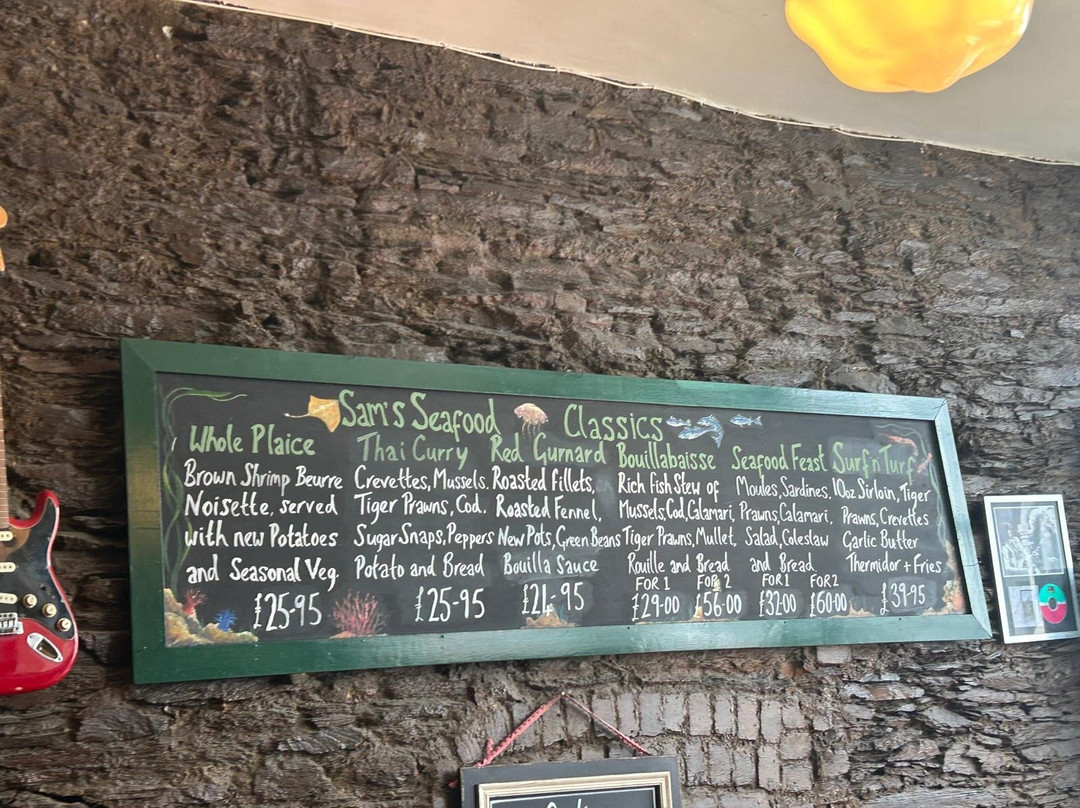 Sam's Seafood Classics
Whole Plaice
Brown Shrimp Beurre
Noisette, served
with new Potatoes
and Seasonal Veg.
£25-95
Thai Curry
Crevettes, Mussels.
Tiger Prawns, Cod.
Sugar Snaps, Peppers
Potato and Bread
£25-95
Red Gurnard
Roasted Fillets,
Roasted Fennel,
New Pots, Green Beans
Bouilla Sauce
£21-95
Bouillabaisse
Rich Fish Stew of
Mussels, Cod, Calamari,
Tiger Prawns, Mullet,
Rouille and Bread
FOR 1 FOR 2
£29-00 £56-00
Seafood Feast
Moules, Sardines,
Prawns, Calamari,
Salad, Coleslaw
and Bread
FOR 1 FOR 2
£32-00 £60-00
Surf n Turf
10oz Sirloin, Tiger
Prawns, Crevettes
Garlic Butter
Thermidor + Fries
£39-95